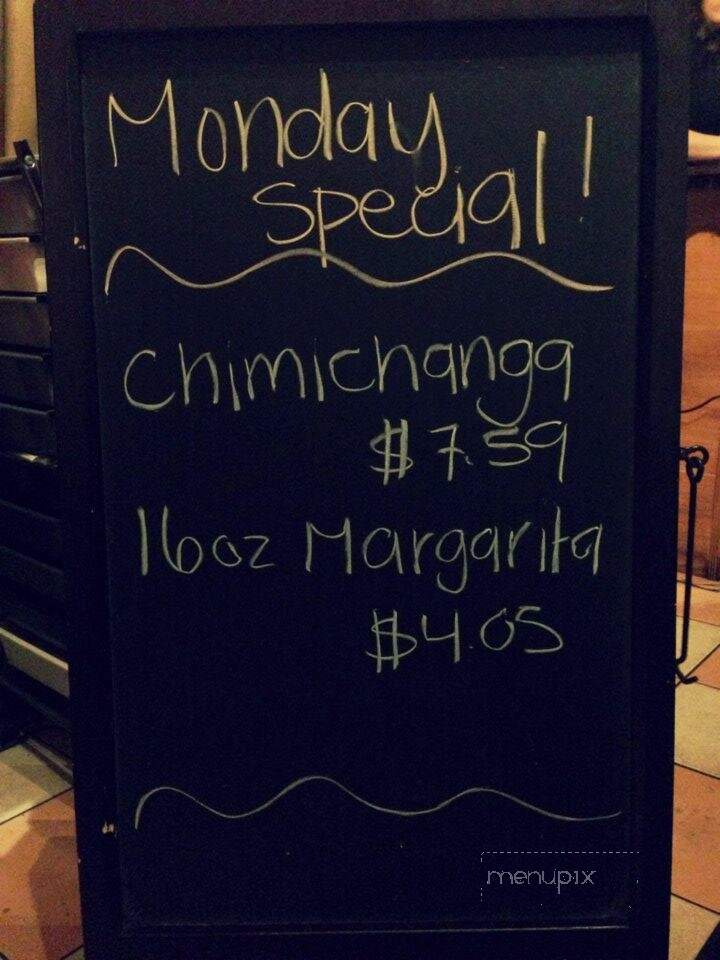 Monday
Special!
Chimichanga
$7.59
16oz Margarita
$4.05
menupix